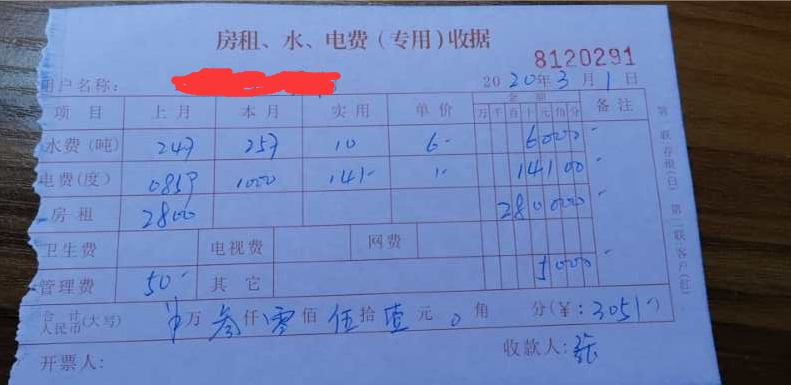 房租、水、电费(专用)收据
8120291
用户名称: 2020年3月1日
项目 上月 本月 实用 单价 金额 备注
万千百十元角分
水费(吨) 247 257 10 6- 6000
电费(度) 0859 1000 141- 1- 14100
房租 2800 280000
卫生费 电视费 网费
管理费 50- 其它 5000
合计人民币(大写) 万叁仟零佰伍拾壹元0角 分(¥:3051-)
开票人: 收款人:张
第一联:存根(白) 第二联:客户(红)